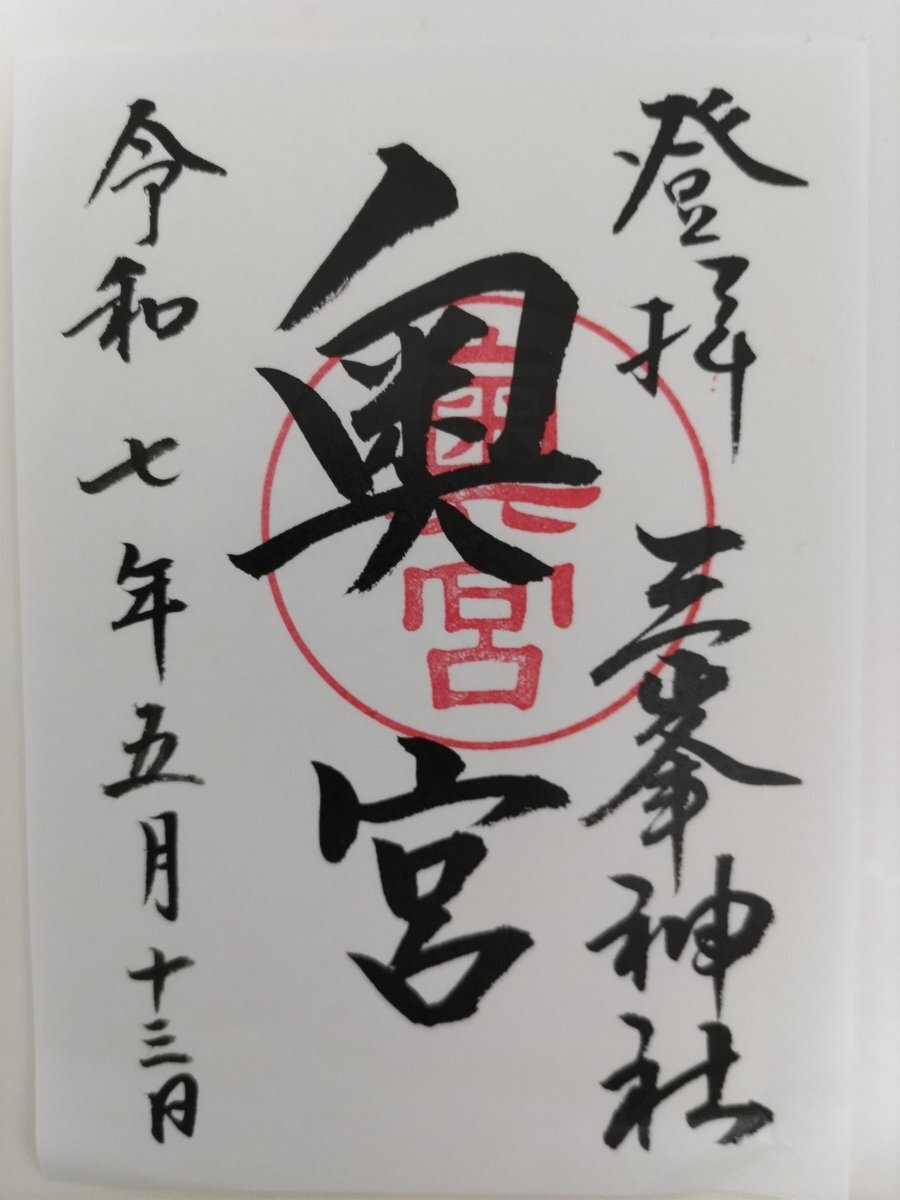 登拝 三峯神社
奥宮
奥宮
令和七年五月十三日